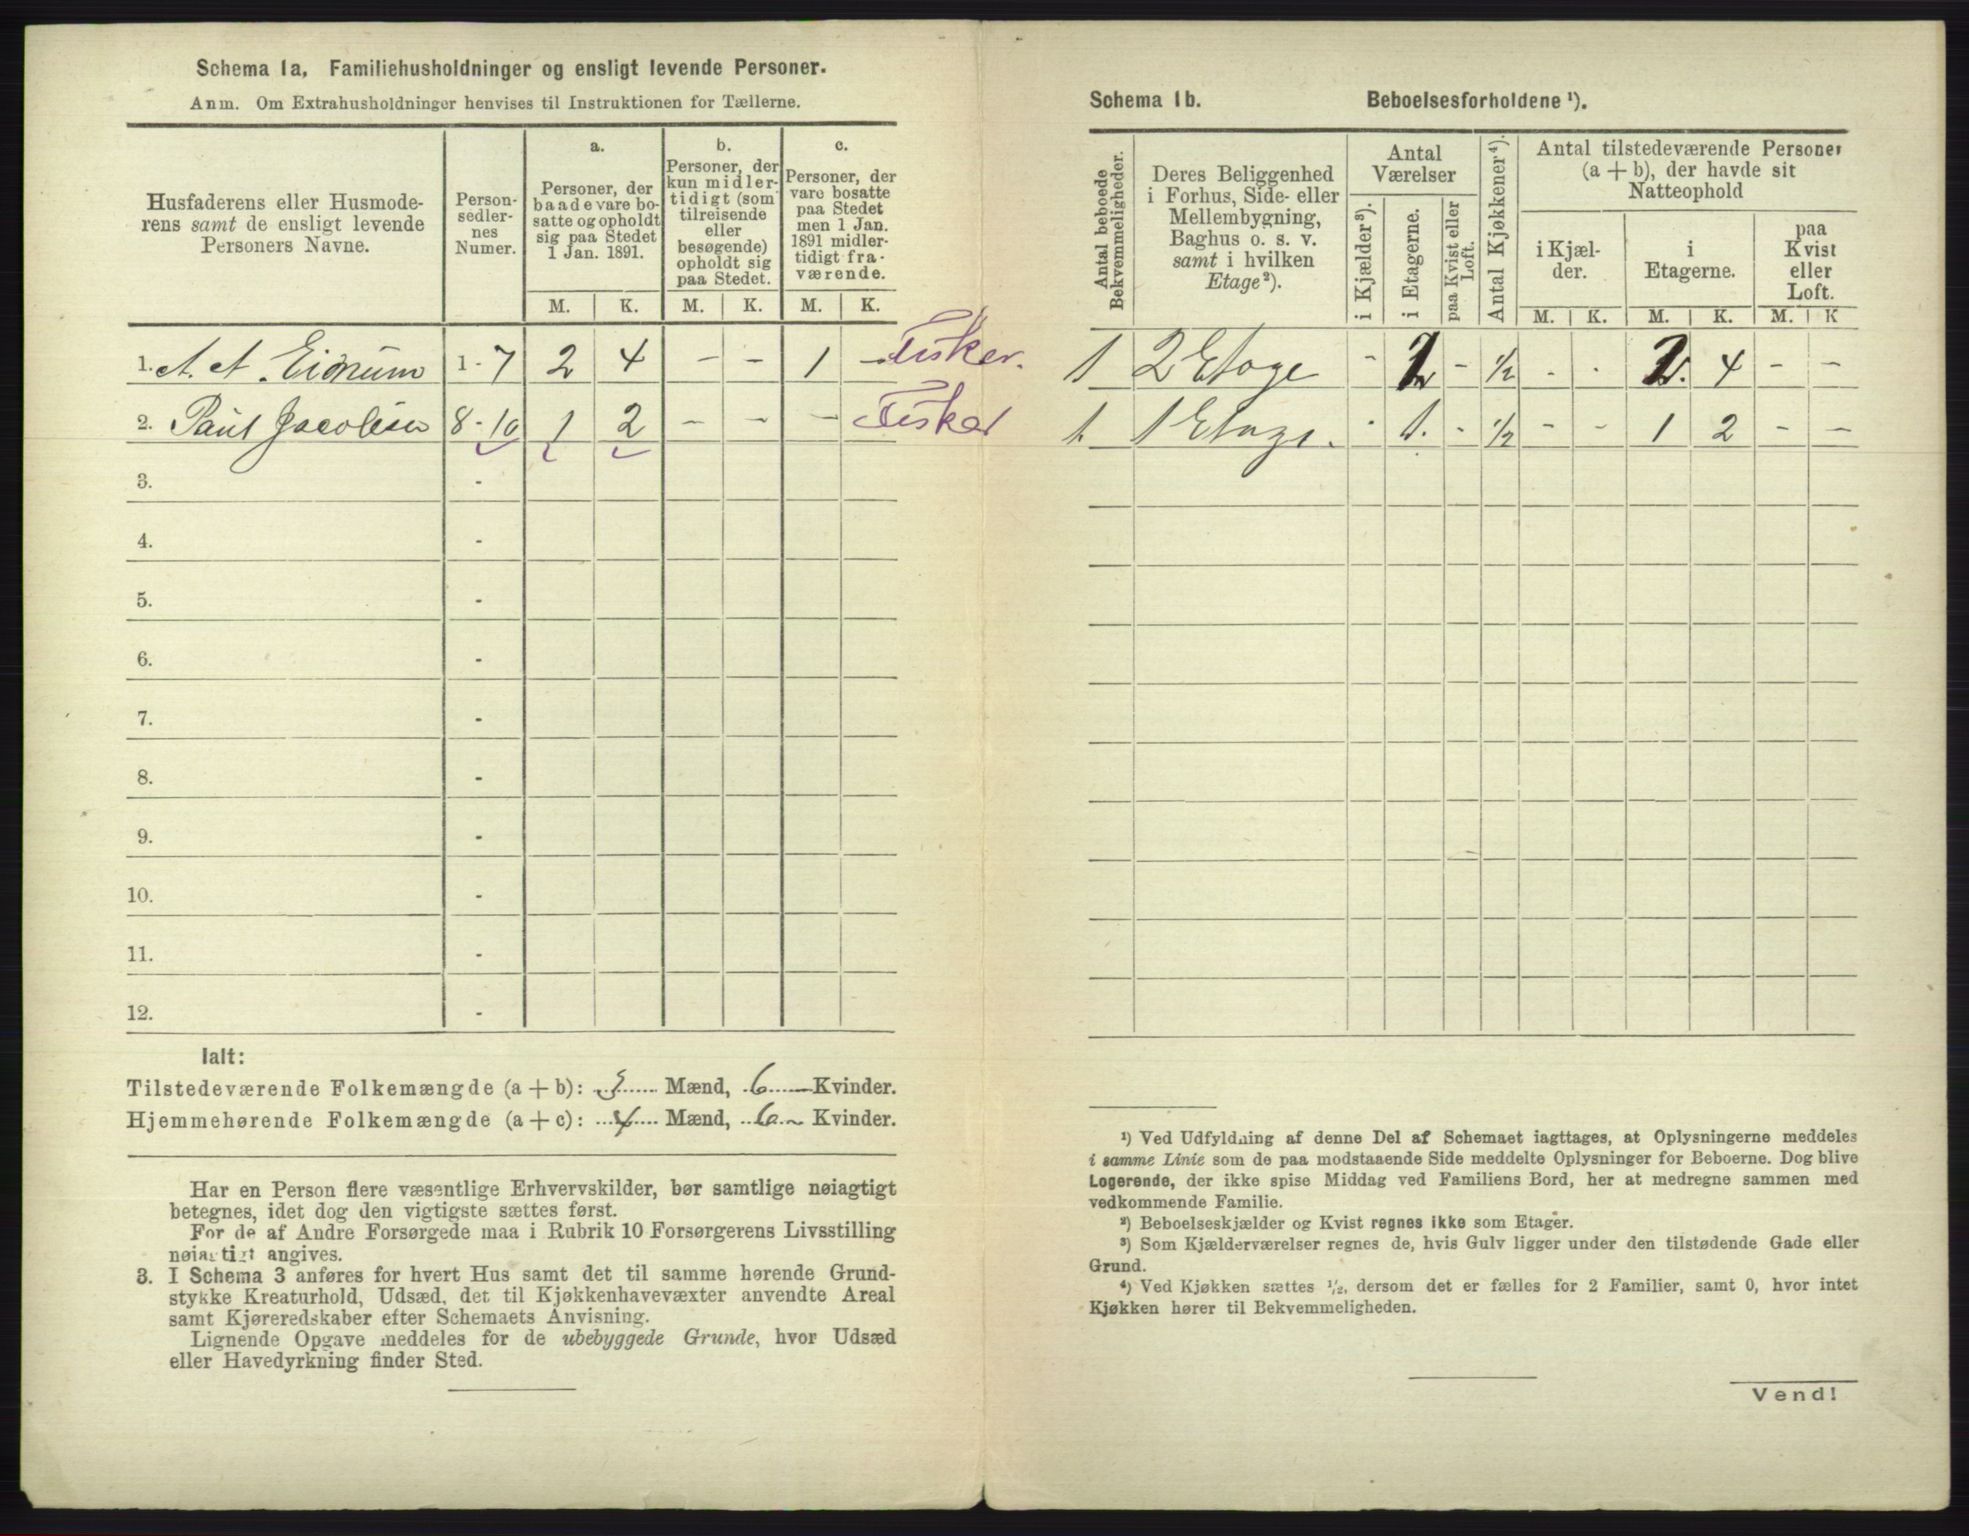 Schema 1a, Familiehusholdninger og ensligt levende Personer.
Anm. Om Extrahusholdninger henvises til Instruktionen for Tællerne.
Husfaderens eller Husmode-
rens samt de ensligt levende
Personers Navne.
Person-
sedler-
nes
Numer.
a.
Personer, der
baade vare bo-
satte og opholdt
sig paa Stedet
1 Jan. 1891.
b.
Personer, der
kun midler-
tidigt (som
tilreisende
eller
besøgende)
opholdt sig
paa Stedet.
c.
Personer, der
vare bosatte
paa Stedet
men 1 Jan.
1891 midler-
tidigt fra-
værende.
M. K. M. K. M. K.
1. A. A. 1 - 7 2 4 - - 1 - Fisker.
2. Paul Jacobsen 8 - 10 1 2 - - - Fisker
3. -
4. -
5. -
6. -
7. -
8. -
9. -
10. -
11. -
12. -
Ialt:
Tilstedeværende Folkemængde (a + b): 3 Mænd, 6 Kvinder.
Hjemmehørende Folkemængde (a + c): 4 Mænd, 6 Kvinder.
Har en Person flere væsentlige Erhvervskilder, bør samtlige nøiagtigt
betegnes, idet dog den vigtigste sættes først.
For de af Andre Forsørgede maa i Rubrik 10 Forsørgerens Livsstilling
nøiagtigt angives.
3. I Schema 3 anføres for hvert Hus samt det til samme hørende Grund-
stykke Kreaturhold, Udsæd, det til Kjøkkenhavevæxter anvendte Areal
samt Kjøreredskaber efter Schemaets Anvisning.
Lignende Opgave meddeles for de ubebyggede Grunde, hvor Udsæd
eller Havedyrkning finder Sted.
Schema 1b. Beboelsesforholdene ¹).
Antal beboede
Bekvemmeligheder.
Deres Beliggenhed
i Forhus, Side- eller
Mellembygning,
Baghus o. s. v.
samt i hvilken
Etage²).
Antal
Værelser
i Kjælder³).
i Etagerne.
paa Kvist eller
Loft.
Antal Kjøkkener⁴).
Antal tilstedeværende Personer
(a + b), der havde sit
Natteophold
i Kjæl-
der.
i
Etagerne.
paa
Kvist
eller
Loft.
M. K. M. K. M. K
1 2 Etage - 2 - ½ - - 2. 4 - -
1. 1 Etage. - 1. - ½ - - 1 2 - -
¹) Ved Udfyldning af denne Del af Schemaet iagttages, at Oplysningerne meddeles
i samme Linie som de paa modstaaende Side meddelte Oplysninger for Beboerne. Dog blive
Logerende, der ikke spise Middag ved Familiens Bord, her at medregne sammen med
vedkommende Familie.
²) Beboelseskjælder og Kvist regnes ikke som Etager.
³) Som Kjælderværelser regnes de, hvis Gulv ligger under den tilstødende Gade eller
Grund.
⁴) Ved Kjøkken sættes ½, dersom det er fælles for 2 Familier, samt 0, hvor intet
Kjøkken hører til Bekvemmeligheden.
Vend!